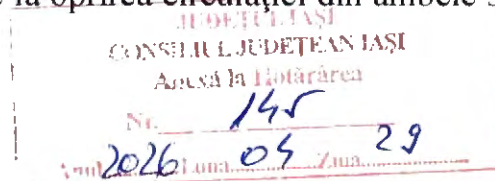 la oprirea circulației din ambele
JUDEȚUL IAȘI
CONSILIUL JUDEȚEAN IAȘI
Anexă la Hotărârea
Nr. 145
Anul 2026 Luna 04 Ziua 29